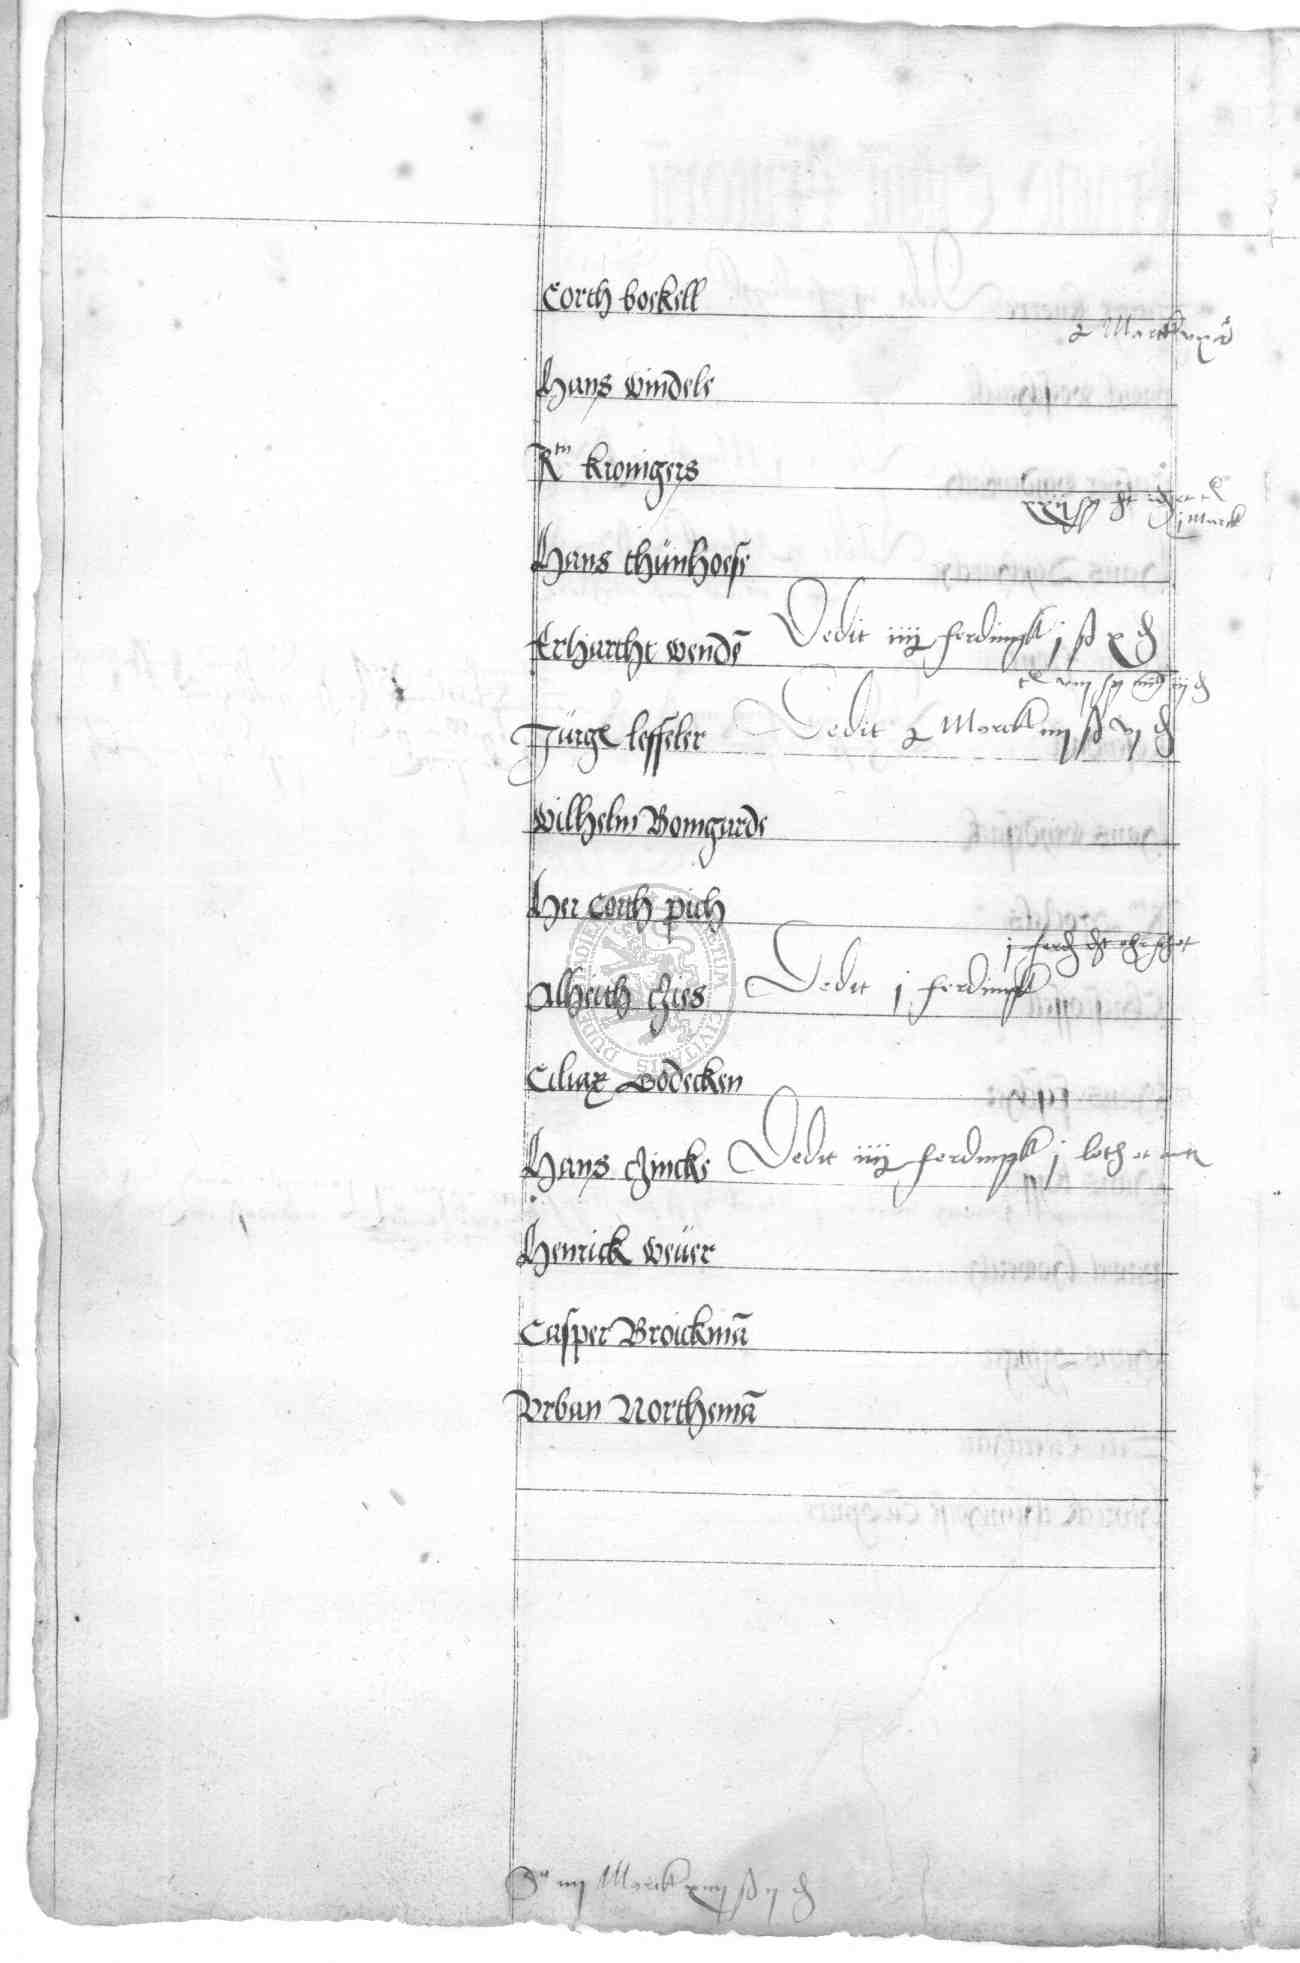 Corth boekell
Marck
Hans windele
R^tn kronigers
j Marck
Hans thünhoese
Erharcht wendē Dedit iiij ferdingk j ß x ₰
Jürgē leffeler Dedit Marck iiij ß vj ₰
Wilhelm Bomgarde
Her Corth pich
j ferd
Alheith czies Dedit j ferdingk
Ciliax Bodecken
Hans czincke Dedit iiij ferdingk j loth
Henrick wever
Casper Broickmā
Urban Northemā
S^a iiij Marck xiiij ß ij ₰